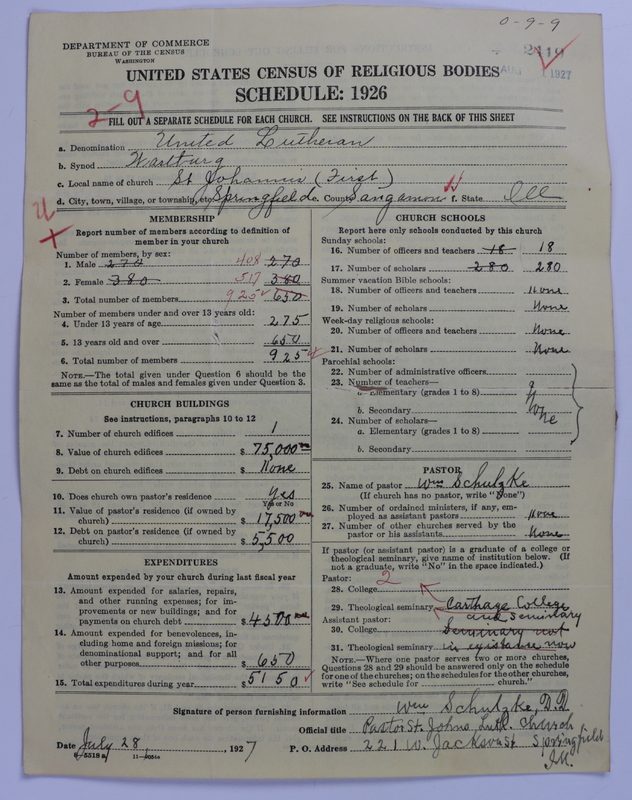 0-9-9
DEPARTMENT OF COMMERCE
BUREAU OF THE CENSUS
WASHINGTON
2119
AUG 1 1927
UNITED STATES CENSUS OF RELIGIOUS BODIES
SCHEDULE: 1926
2-9
FILL OUT A SEPARATE SCHEDULE FOR EACH CHURCH. SEE INSTRUCTIONS ON THE BACK OF THIS SHEET
a. Denomination United Lutheran
b. Synod Wartburg
c. Local name of church St Johannis (First)
d. City, town, village, or township, etc. Springfield e. County Sangamon f. State Ill
MEMBERSHIP
Report number of members according to definition of
member in your church
Number of members, by sex:
1. Male 270 408 270
2. Female 380 517 380
3. Total number of members 925 650
Number of members under and over 13 years old:
4. Under 13 years of age 275
5. 13 years old and over 650
6. Total number of members 925
NOTE.—The total given under Question 6 should be
the same as the total of males and females given under Question 3.
CHURCH BUILDINGS
See instructions, paragraphs 10 to 12
7. Number of church edifices 1
8. Value of church edifices $75,000
9. Debt on church edifices $ None
10. Does church own pastor's residence Yes
Yes or No
11. Value of pastor's residence (if owned by
church) $17,500
12. Debt on pastor's residence (if owned by
church) $5,500
EXPENDITURES
Amount expended by your church during last fiscal year
13. Amount expended for salaries, repairs,
and other running expenses; for im-
provements or new buildings; and for
payments on church debt $4500
14. Amount expended for benevolences, in-
cluding home and foreign missions; for
denominational support; and for all
other purposes $650
15. Total expenditures during year $5150
CHURCH SCHOOLS
Report here only schools conducted by this church
Sunday schools:
16. Number of officers and teachers 18 18
17. Number of scholars 280 280
Summer vacation Bible schools:
18. Number of officers and teachers None
19. Number of scholars None
Week-day religious schools:
20. Number of officers and teachers None
21. Number of scholars None
Parochial schools:
22. Number of administrative officers
23. Number of teachers—
a. Elementary (grades 1 to 8)
b. Secondary None
24. Number of scholars—
a. Elementary (grades 1 to 8)
b. Secondary
PASTOR
25. Name of pastor Wm Schulzke
(If church has no pastor, write "None")
26. Number of ordained ministers, if any, em-
ployed as assistant pastors None
27. Number of other churches served by the
pastor or his assistants None
If pastor (or assistant pastor) is a graduate of a college or
theological seminary, give name of institution below. (If
not a graduate, write "No" in the space indicated.)
Pastor: 2
28. College
29. Theological seminary Carthage College
Assistant pastor: and Seminary
30. College Seminary not
31. Theological seminary in existance now
NOTE.—Where one pastor serves two or more churches,
Questions 28 and 29 should be answered only on the schedule
for one of the churches; on the schedules for the other churches,
write "See schedule for church."
Signature of person furnishing information Wm Schulzke, D.D.
Official title Pastor St. Johns Luth. Church
Date July 28, 1927 P. O. Address 221 W. Jackson St Springfield
Ill.